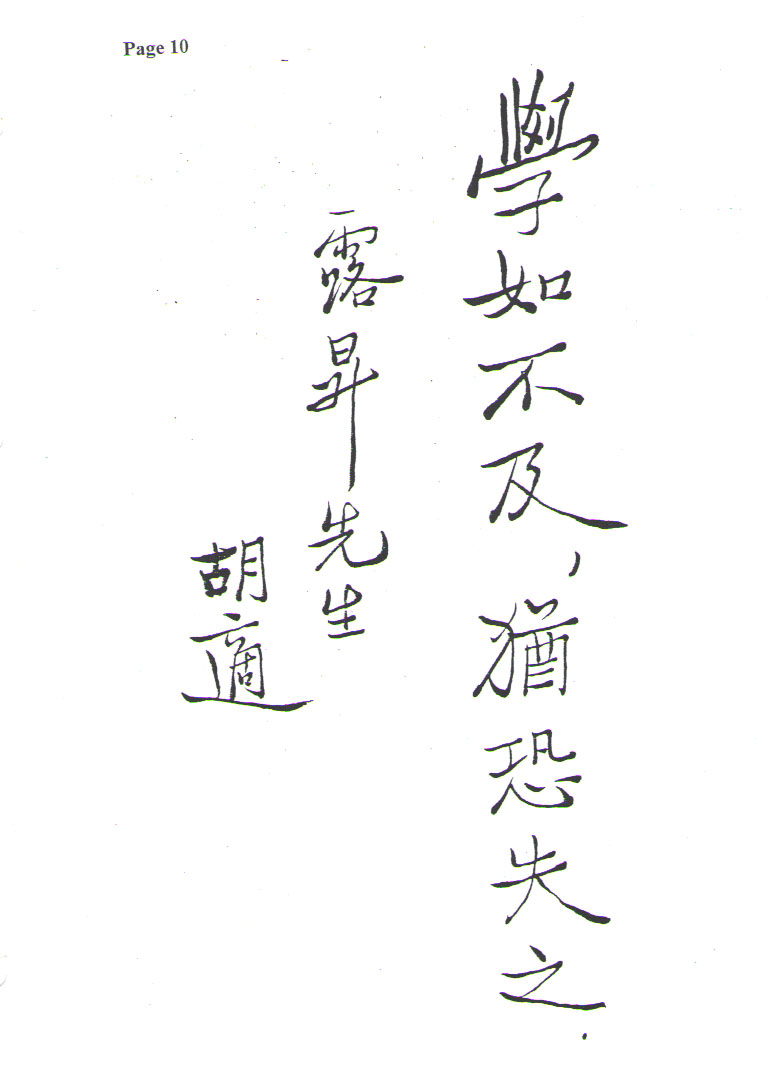 Page 10
學如不及，猶恐失之.
露昇先生
胡適